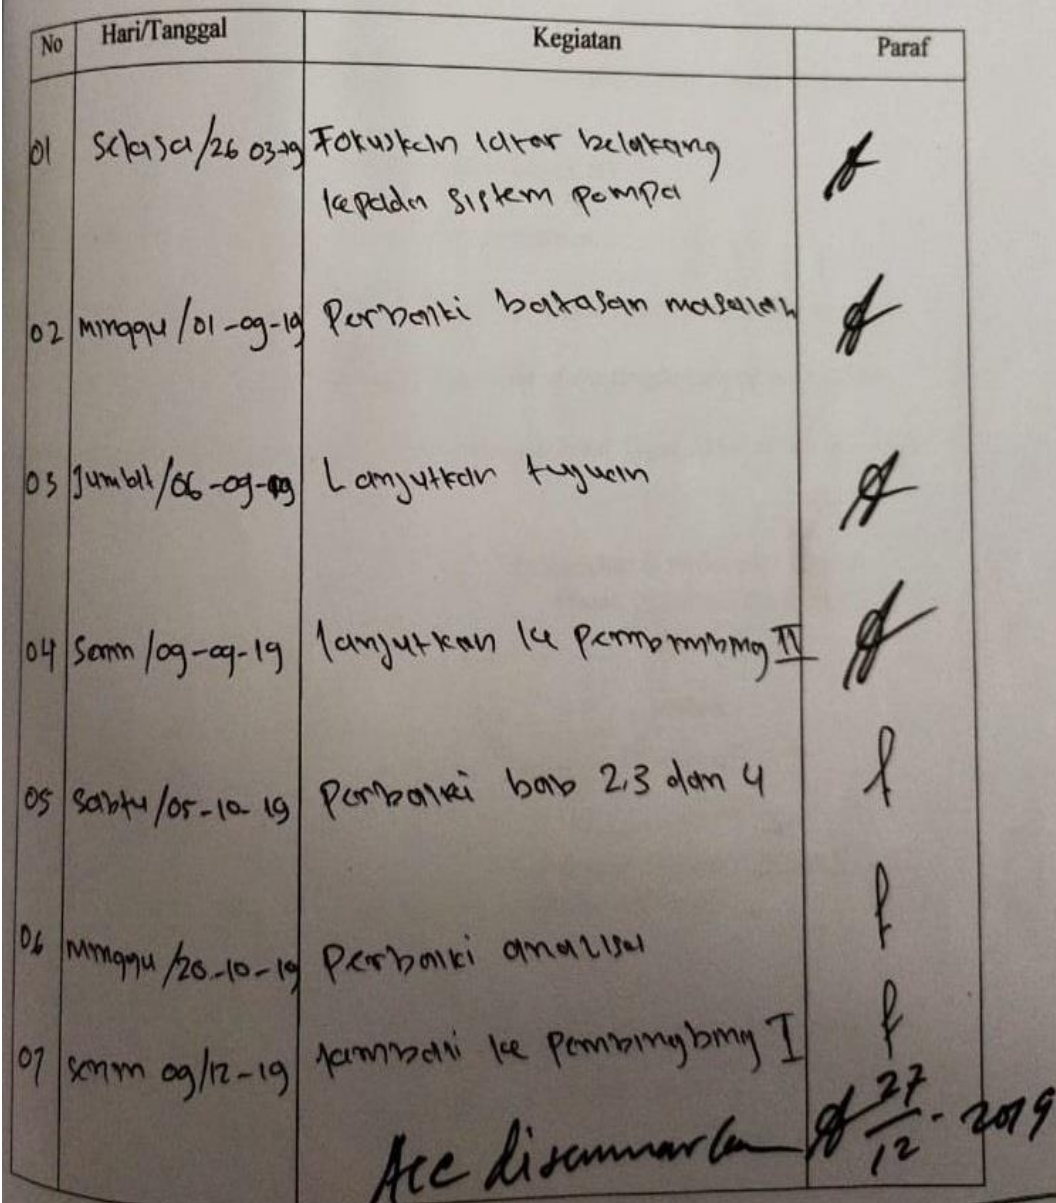 No Hari/Tanggal Kegiatan Paraf
01 Selasa/26 03-19 Fokuskan latar belakang
kepada sistem pompa
02 Minggu/01-09-19 Perbaiki batasan masalah
03 Jumat/06-09-19 Lanjutkan tujuan
04 Senin/09-09-19 lanjutkan ke pembimbing II
05 Sabtu/05-10-19 Perbaiki bab 2,3 dan 4
06 Minggu/20-10-19 Perbaiki analisa
07 Senin 09/12-19 kembali ke pembingbing I
Acc diseminarkan 27/12-2019